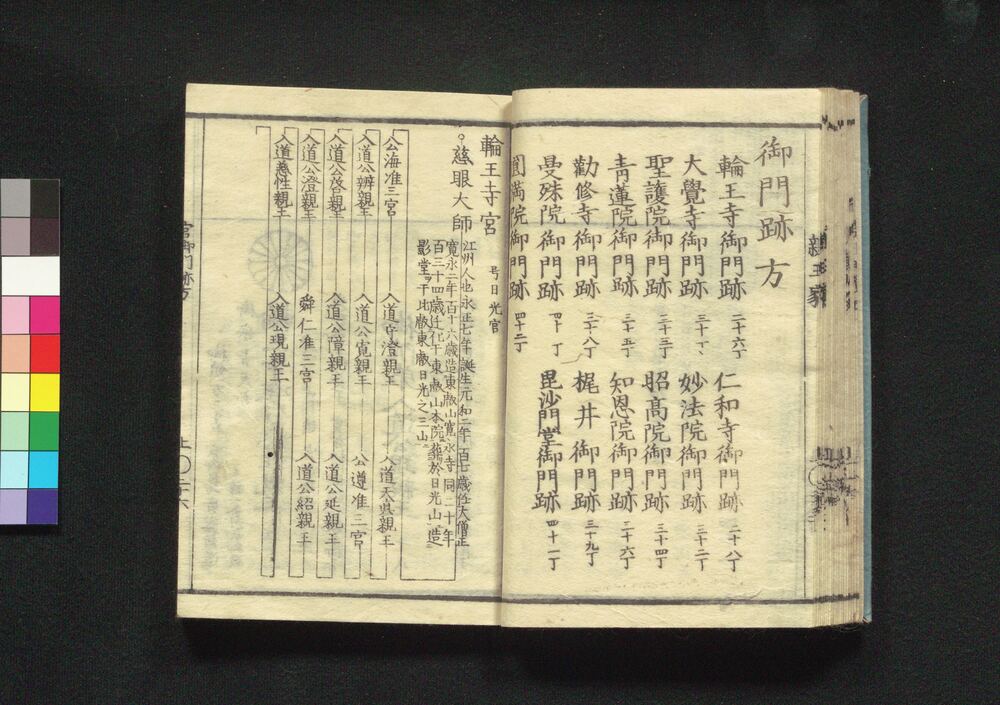 御門跡方
輪王寺御門跡 二十六丁
仁和寺御門跡 二十八丁
大覺寺御門跡 三十丁
妙法院御門跡 三十二丁
聖護院御門跡 三十三丁
昭髙院御門跡 三十四丁
青蓮院御門跡 三十五丁
知恩院御門跡 三十六丁
勸修寺御門跡 三十八丁
梶井御門跡 三十九丁
曼殊院御門跡 四十丁
毘沙門堂御門跡 四十一丁
圓満院御門跡 四十二丁
輪王寺宮 号日光宮
慈眼大師
江州人也永正七年誕生元和二年百七歳任大僧正
寛永二年百十六歳造東叡山寛永寺同二十年
百三十四歳迁化于東叡山本院葬於日光山造
影堂于比叡東叡日光之三山
公海准三宮
入道守澄親王
入道天眞親王
入道公辨親王
入道公寛親王
公遵准三宮
入道公啓親王
入道公障親王
入道公延親王
入道公澄親王
舜仁准三宮
入道公紹親王
入道慈性親王
入道公現親王
宮御門跡方
上〇二十六